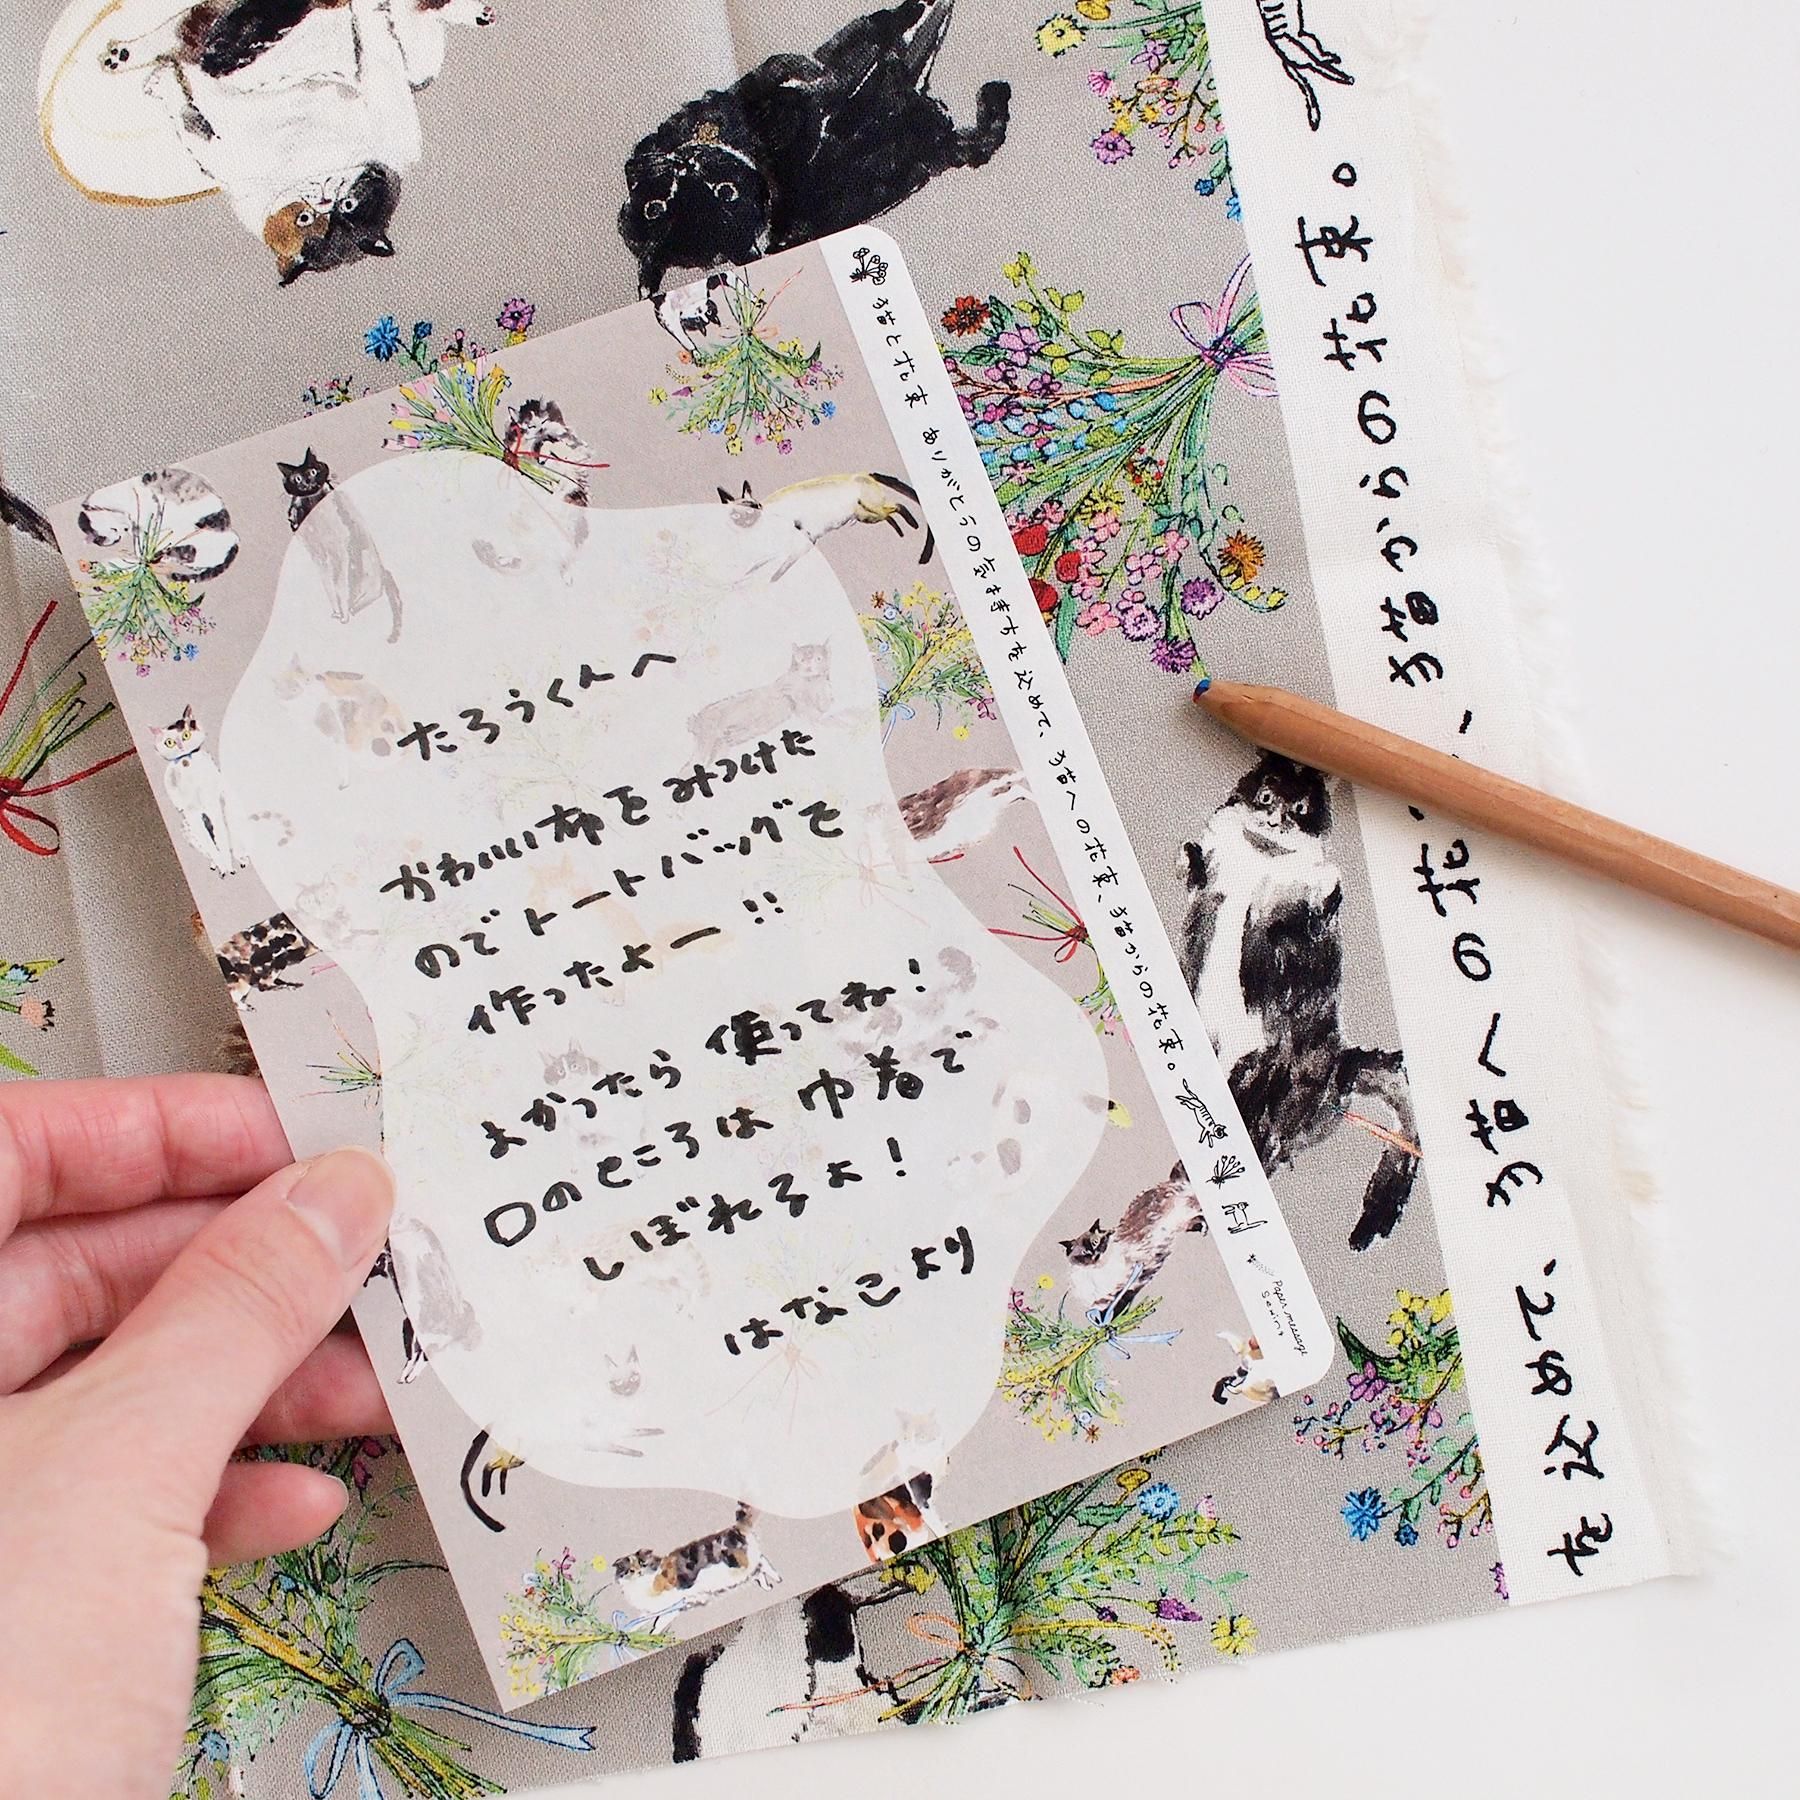 たろうくんへ
かわいい布をみつけた
のでトートバッグを
作ったよー!!
よかったら使ってね!
口のところは巾着で
しぼれるよ!
はなこより
猫と花束 ありがとうの気持ちを込めて、猫への花束、猫からの花束。
Paper message
Sewing
を込めて、猫への花束、猫からの花束。